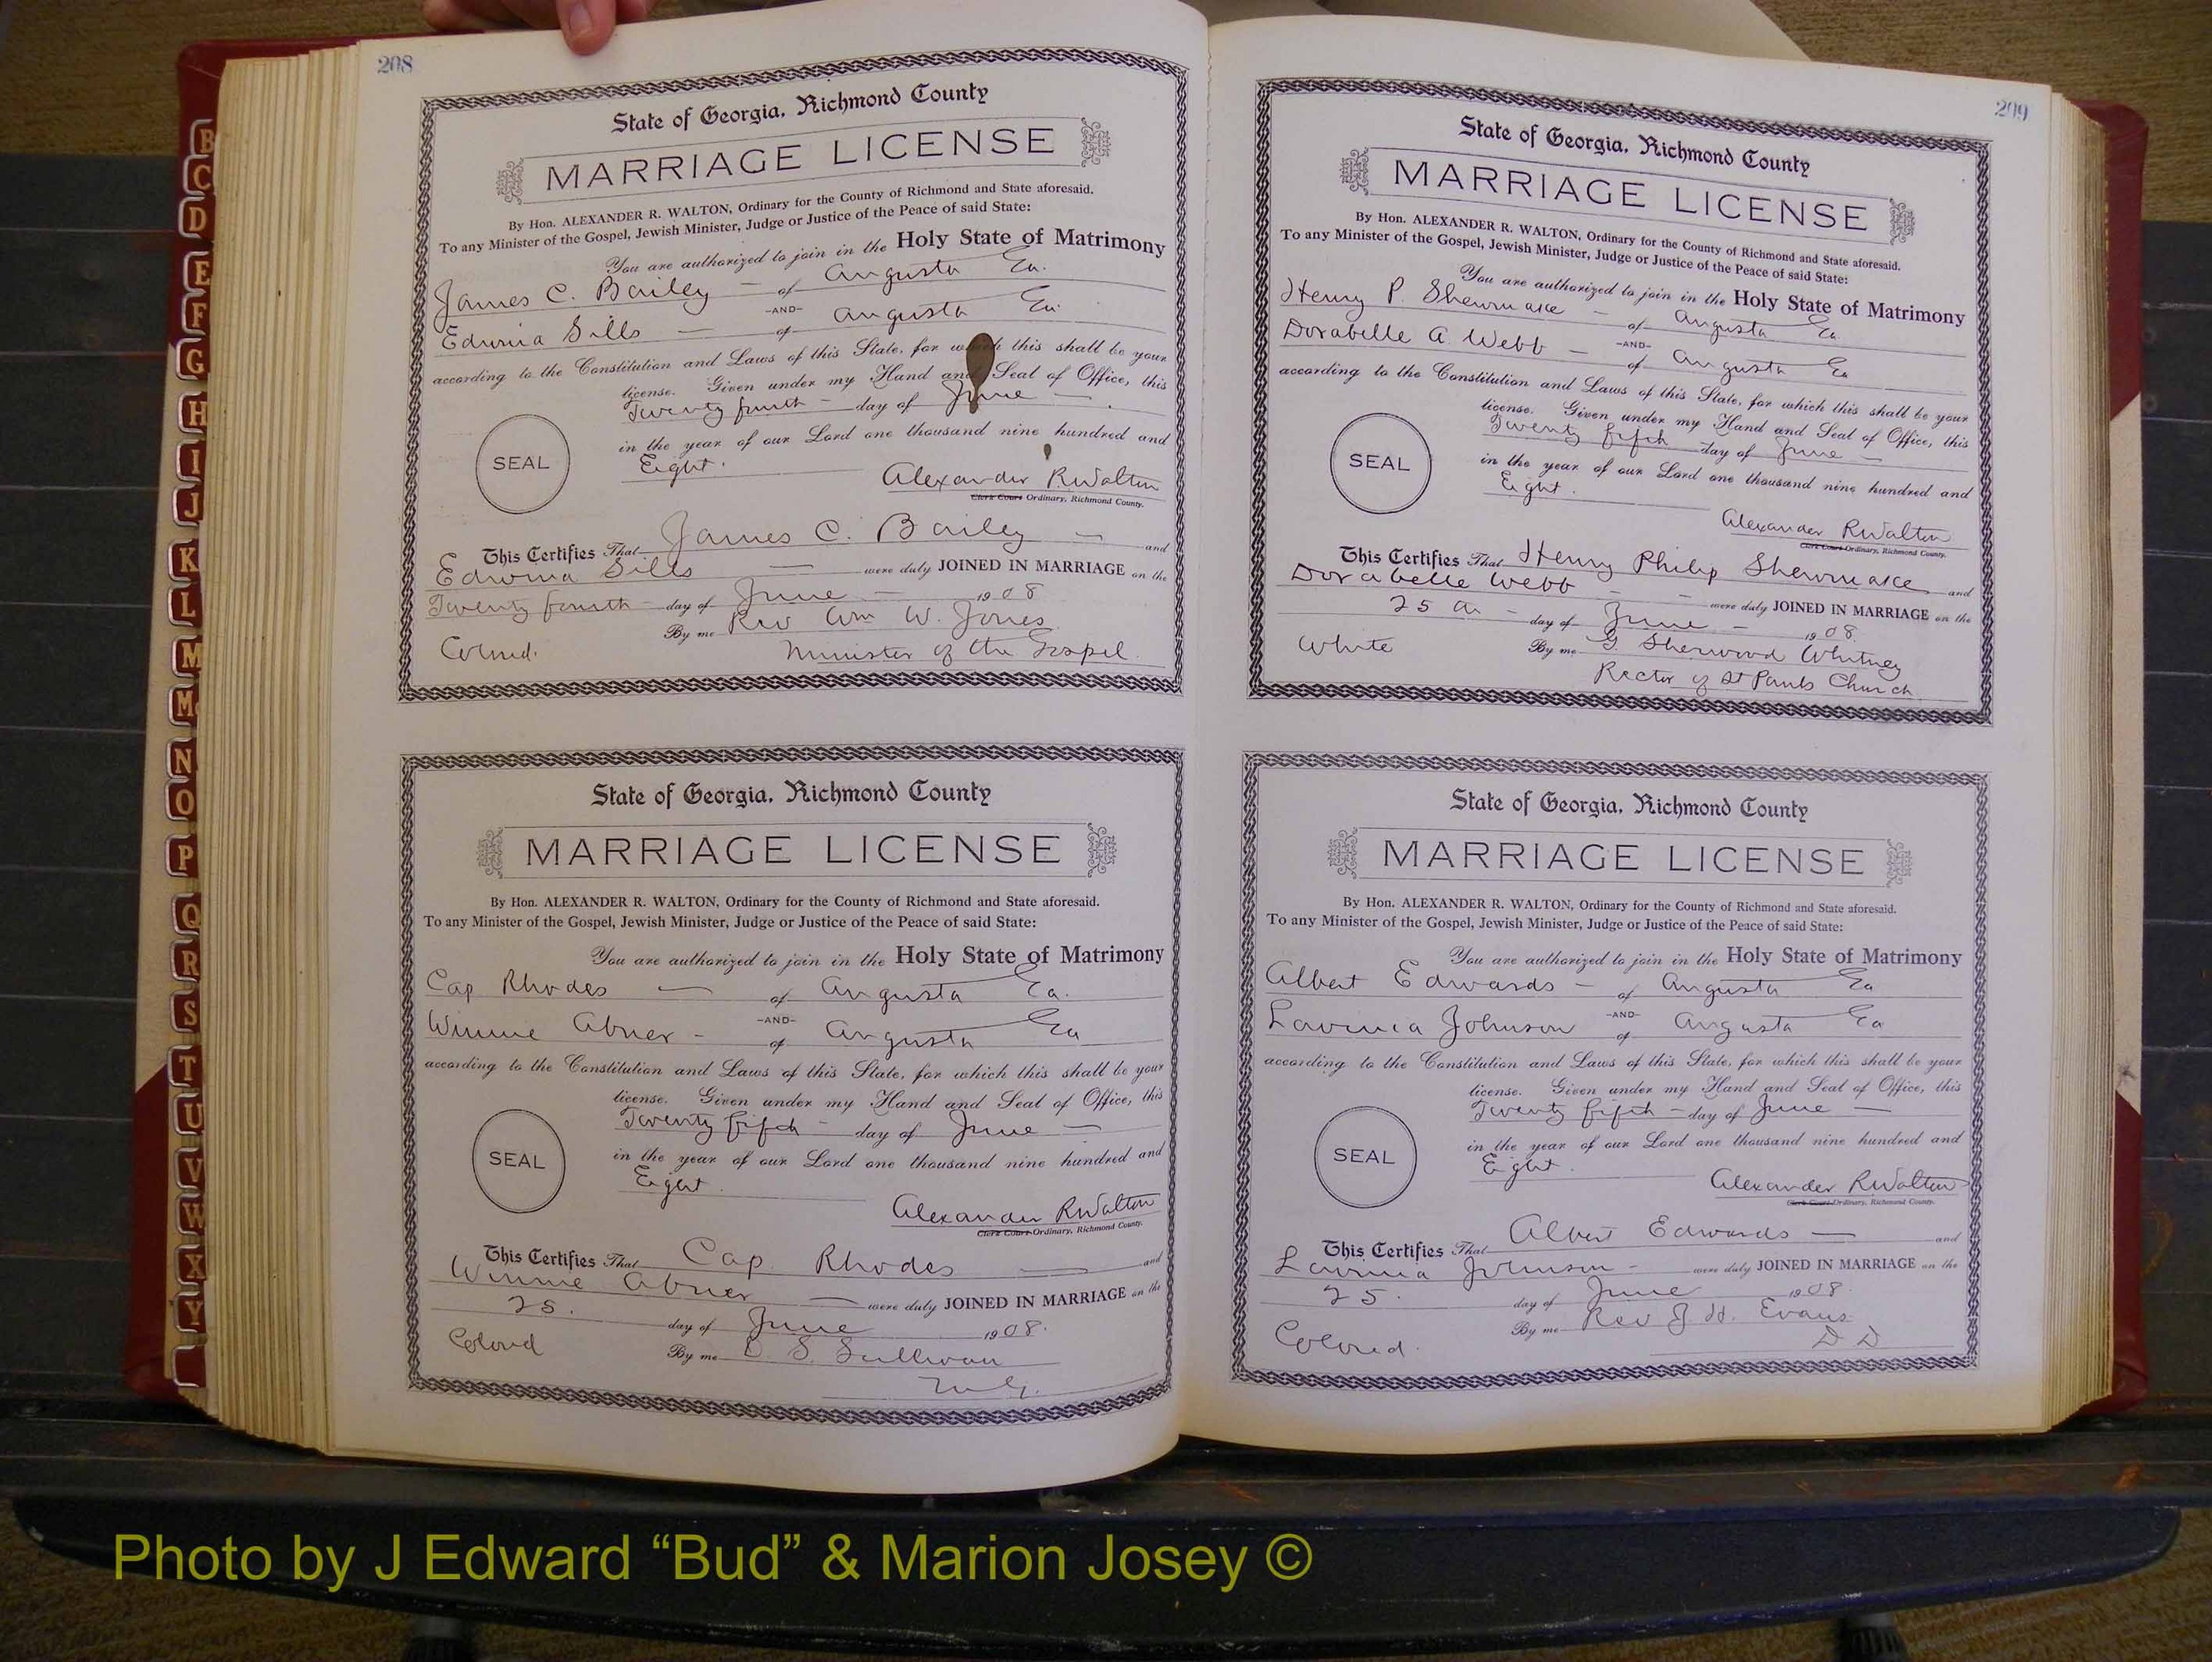 208
State of Georgia, Richmond County
MARRIAGE LICENSE
By Hon. ALEXANDER R. WALTON, Ordinary for the County of Richmond and State aforesaid.
To any Minister of the Gospel, Jewish Minister, Judge or Justice of the Peace of said State:
You are authorized to join in the Holy State of Matrimony
James C. Bailey - of Augusta Ga.
-AND-
Edwina Sills - of Augusta Ga.
according to the Constitution and Laws of this State, for which this shall be your
license. Given under my Hand and Seal of Office, this
Twenty fourth - day of June -
in the year of our Lord one thousand nine hundred and
SEAL
Eight.
Alexander R Walton
Clerk Court Ordinary, Richmond County.
This Certifies That James C. Bailey - and
Edwina Sills - were duly JOINED IN MARRIAGE on the
Twenty fourth - day of June - 1908
By me Rev Wm W. Jones
Colored. Minister of the Gospel.
State of Georgia, Richmond County
MARRIAGE LICENSE
By Hon. ALEXANDER R. WALTON, Ordinary for the County of Richmond and State aforesaid.
To any Minister of the Gospel, Jewish Minister, Judge or Justice of the Peace of said State:
You are authorized to join in the Holy State of Matrimony
Cap Rhodes - of Augusta Ga.
-AND-
Winnie Abner - of Augusta Ga
according to the Constitution and Laws of this State, for which this shall be your
license. Given under my Hand and Seal of Office, this
Twenty fifth - day of June -
in the year of our Lord one thousand nine hundred and
SEAL
Eight.
Alexander R Walton
Clerk Court Ordinary, Richmond County.
This Certifies That Cap. Rhodes - and
Winnie Abner - were duly JOINED IN MARRIAGE on the
25. day of June 1908.
Colored By me D. S. Sullivan
M.G.
209
State of Georgia, Richmond County
MARRIAGE LICENSE
By Hon. ALEXANDER R. WALTON, Ordinary for the County of Richmond and State aforesaid.
To any Minister of the Gospel, Jewish Minister, Judge or Justice of the Peace of said State:
You are authorized to join in the Holy State of Matrimony
Henry P. Shewmake - of Augusta Ga
-AND-
Dorabelle A. Webb - of Augusta Ga
according to the Constitution and Laws of this State, for which this shall be your
license. Given under my Hand and Seal of Office, this
Twenty fifth day of June -
in the year of our Lord one thousand nine hundred and
SEAL
Eight.
Alexander R Walton
Clerk Court Ordinary, Richmond County.
This Certifies That Henry Philip Shewmake and
Dorabelle Webb - were duly JOINED IN MARRIAGE on the
25 - day of June - 1908.
White By me G. Sherwood Whitney
Rector of St Pauls Church
State of Georgia, Richmond County
MARRIAGE LICENSE
By Hon. ALEXANDER R. WALTON, Ordinary for the County of Richmond and State aforesaid.
To any Minister of the Gospel, Jewish Minister, Judge or Justice of the Peace of said State:
You are authorized to join in the Holy State of Matrimony
Albert Edwards - of Augusta Ga
-AND-
Lavinia Johnson of Augusta Ga
according to the Constitution and Laws of this State, for which this shall be your
license. Given under my Hand and Seal of Office, this
Twenty fifth - day of June -
in the year of our Lord one thousand nine hundred and
SEAL
Eight.
Alexander R Walton
Clerk Court Ordinary, Richmond County.
This Certifies That Albert Edwards - and
Lavinia Johnson - were duly JOINED IN MARRIAGE on the
25. day of June 1908.
By me Rev J. H. Evans
Colored. D D
B
C
D
E
F
G
H
I
J
K
L
M
Mc
N
O
P
Q
R
S
T
U
V
W
X
Y
Photo by J Edward “Bud” & Marion Josey ©